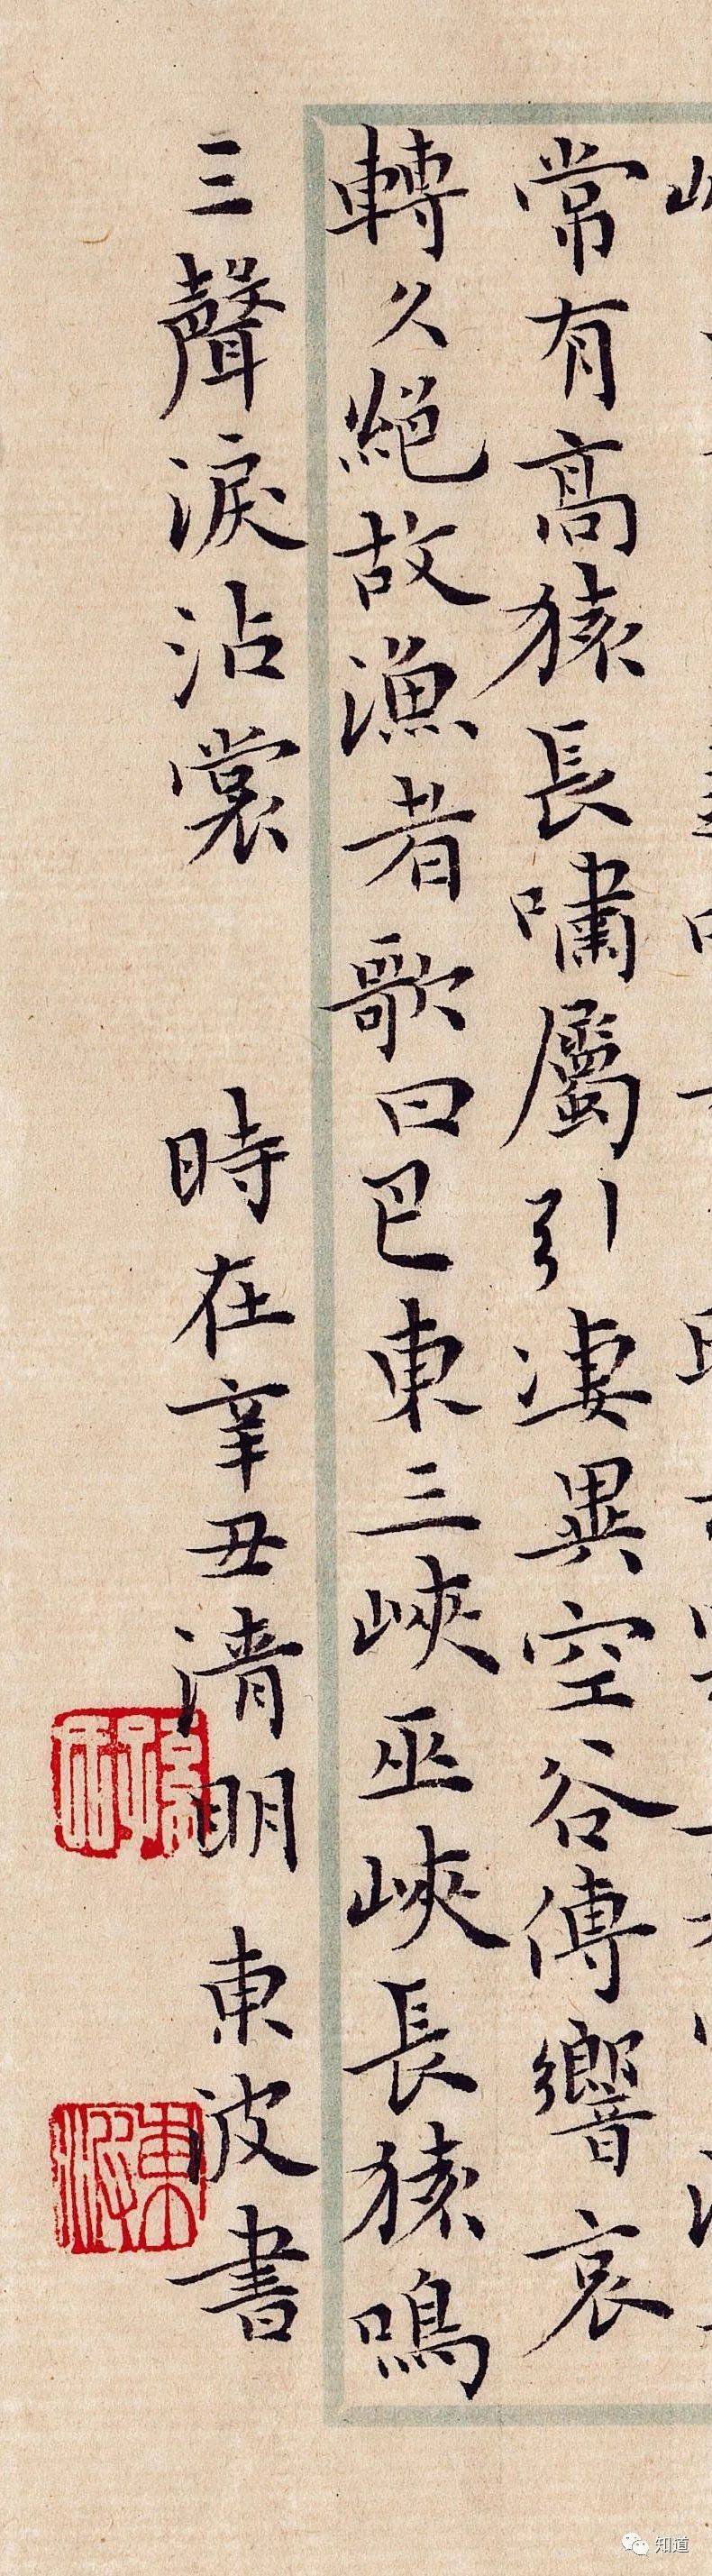 常有高猿長嘯屬引淒異空谷傳響哀
轉久絕故漁者歌曰巴東三峽巫峽長猿鳴
三聲淚沾裳 時在辛丑清明 東波書
知道